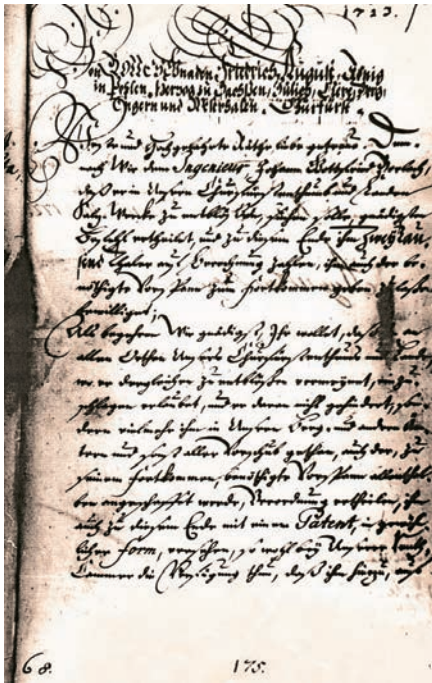 1723.
Von GOTTES Gnaden, Friedrich August, König
in Pohlen, Hertzog zu Sachßen, Jülich, Cleve, Berg,
Engern und Westphalen. Churfürst.
und Räthe, liebe getreue. Dem-
nach Wir dem Ingenieur Johann Gottfried Borlach,
daß er in Unsern Churfürstenthumb und Landen
Saltz-Wercke zu entblößen, suchen solle, gnädigsten
Befehl ertheilet, und zu diesem Ende ihm Zwey tau-
send Thaler auf Berechnung zahlen, ihm auch der be-
nöthigte Vorspann zum Fortkommen geben zu laßen
bewilliget;
Als begehren Wir gnädigst, Ihr wollet, daß ihm an
allen Orthen Unsers Churfürstenthums und Landen
wo er dergleichen zu entblößen vermeynet, einzu-
schlagen erlaubet, und er daran nicht gehindert, son-
dern vielmehr ihm in Unsern Berg- und andern Äm-
tern und sonst aller Vorschub gethan, auch der, zu
seinem Fortkommen, benöthigte Vorspann allenthal-
ben angeschafft werde, Verordnung ertheilen, ihn
auch zu diesem Ende mit einem Patent, in gewöhn-
licher Form, versehen, so wohl bey Unserer
Cammer die Verfügung thun, daß ihm hierzu,
68. 175.